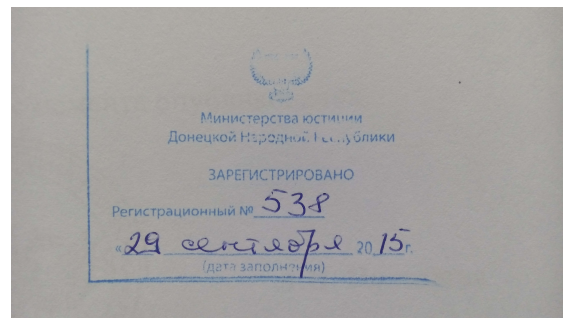 Министерства юстиции
Донецкой Народной Республики
ЗАРЕГИСТРИРОВАНО
Регистрационный № 538
«29 сентября 2015г.
(дата заполнения)